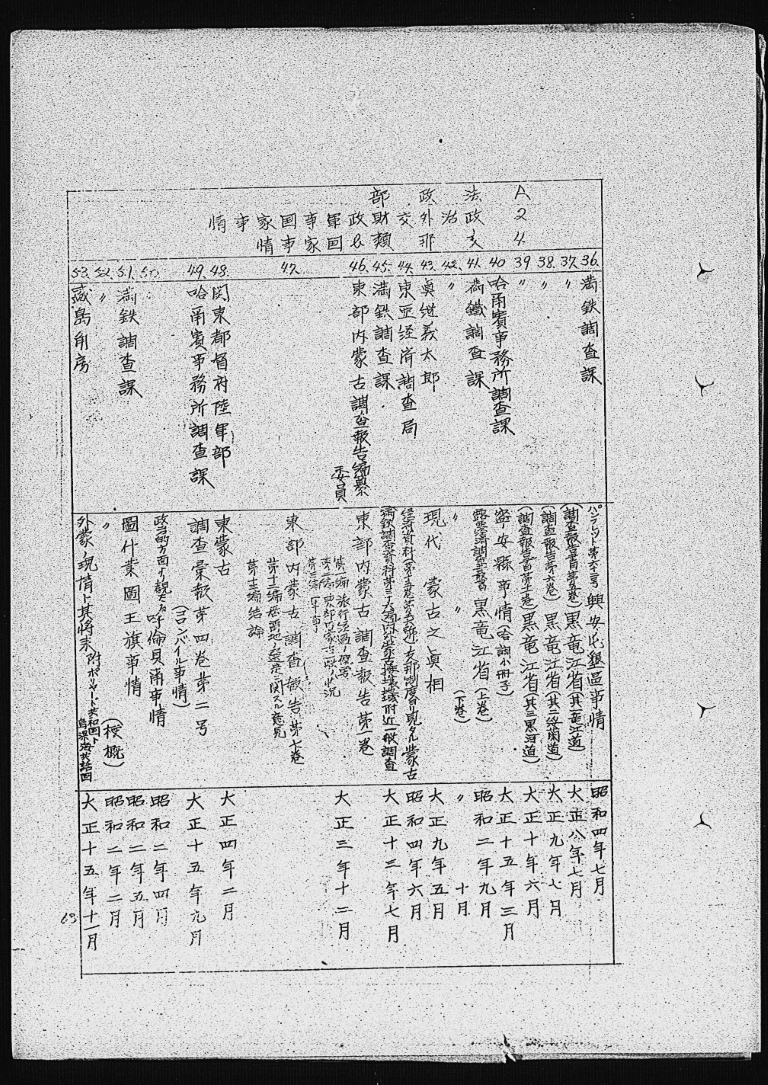 A 法政部
2 政治外交財政軍事国家事情
4 支那類&国家事情
36. 満鉄調査課 パンフレット第六十三号 興安屯墾区事情 昭和四年七月
37. 〃 (調査報告書第四巻) 黒竜江省(其一竜江道) 大正八年七月
38. 〃 (調査報告書第六巻) 黒竜江省(其二綏蘭道) 大正九年七月
39 〃 (調査報告書第十巻) 黒竜江省(其三黒河道) 大正十年六月
40 哈爾賓事務所調査課 寧安縣事情(哈調小冊子) 大正十五年三月
41. 満鐵調査課 黒竜江省(上巻) 昭和二年九月
42. 〃 〃 〃 (下巻) 〃 十月
43. 奥継義太郎 現代蒙古之真相 大正九年五月
44. 東亜経済調査局 支那制度ヨリ現タル蒙古 昭和四年六月
45. 満鉄調査課 附近一般調査 大正十三年七月
46. 東部内蒙古調査報告編纂委員 東部内蒙古調査報告第一巻 大正三年十二月
第一編 旅行経過ノ概写
軍事
47. 東部内蒙古調査報告第七巻
第十二編
第十三編 結論
48. 関東都督府陸軍部 東蒙古 大正四年二月
49. 哈爾賓事務所調査課 調査彙報第四巻第二号 大正十五年九月
(コロンバイル事情)
50. 政治的方面ヨリ観タル呼倫貝爾事情 昭和二年四月
51. 満鉄調査課 圖什業圖王旗事情 昭和二年五月
52. 〃 〃 (梗概) 昭和二年二月
53. 外蒙ノ現情ト其將来 大正十五年十一月
63